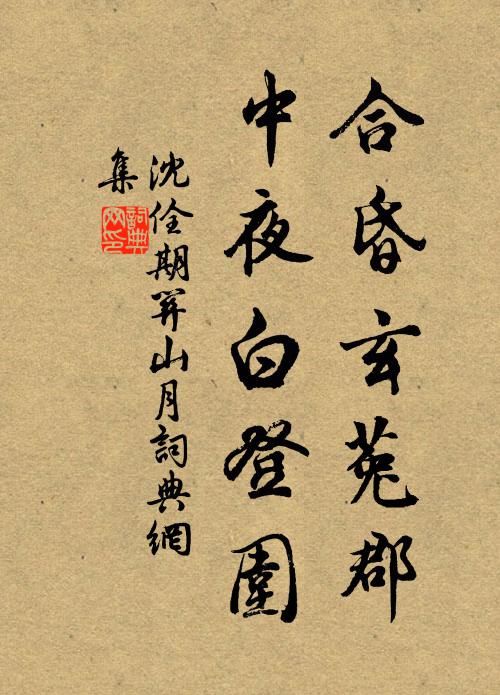 合昏玄菟郡
中夜白登圍
沈佺期關山月詞典網
集
詞典網印